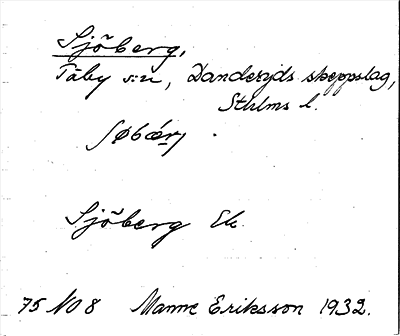 Sjöberg,
Täby s:n, Danderyds skeppslag,
Sthlms l.
Sjöberg Ek.
75 NO 8 Manne Eriksson 1932.